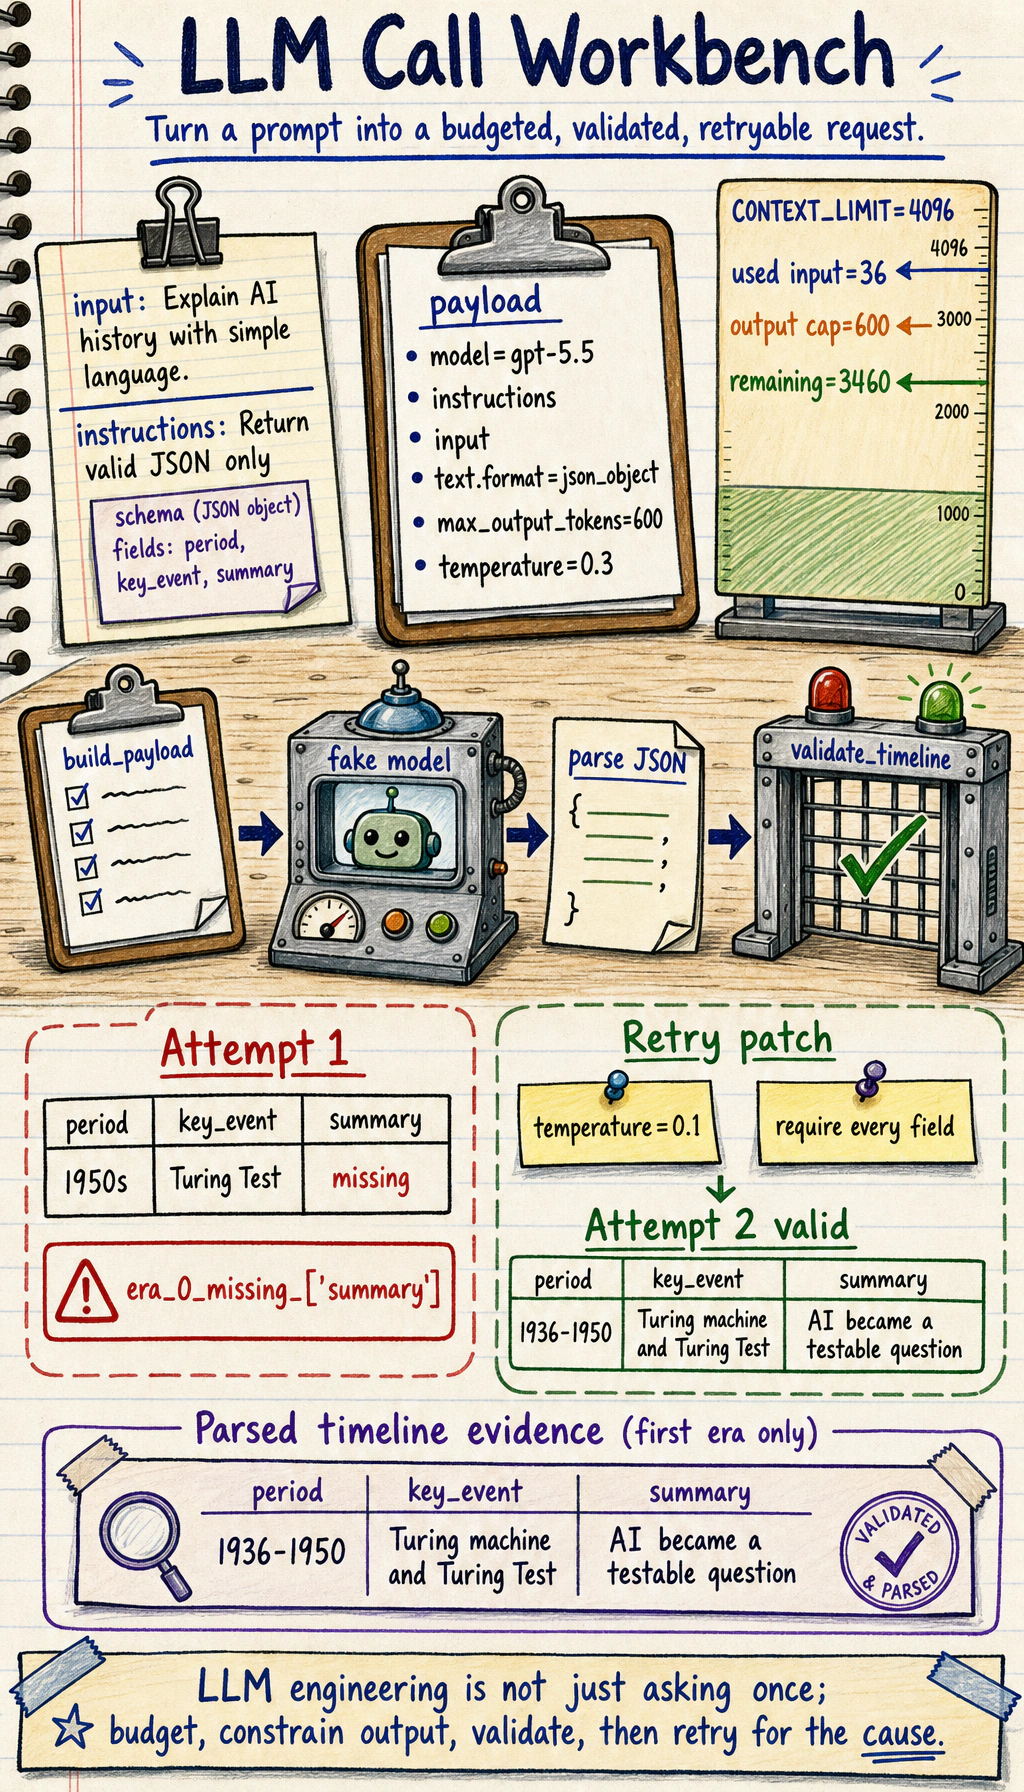 LLM Call Workbench
Turn a prompt into a budgeted, validated, retryable request.
input: Explain AI
history with simple
language.
instructions: Return
valid JSON only
schema (JSON object)
fields: period,
key_event, summary
payload
• model=gpt-5.5
• instructions
• input
• text.format=json_object
• max_output_tokens=600
• temperature=0.3
CONTEXT_LIMIT=4096
4096
used input=36
output cap=600
3000
remaining=3460
2000
1000
0
build_payload
fake model
parse JSON
{
,
,
,
}
validate_timeline
Attempt 1
period key_event summary
1950s Turing Test missing
! era_0_missing_['summary']
Retry patch
temperature=0.1
require every field
Attempt 2 valid
period key_event summary
1936-1950 Turing machine
and Turing Test AI became a
testable question
Parsed timeline evidence (first era only)
period key_event summary
1936-1950 Turing machine
and Turing Test AI became a
testable question
VALIDATED
& PARSED
LLM engineering is not just asking once;
budget, constrain output, validate, then retry for the cause.